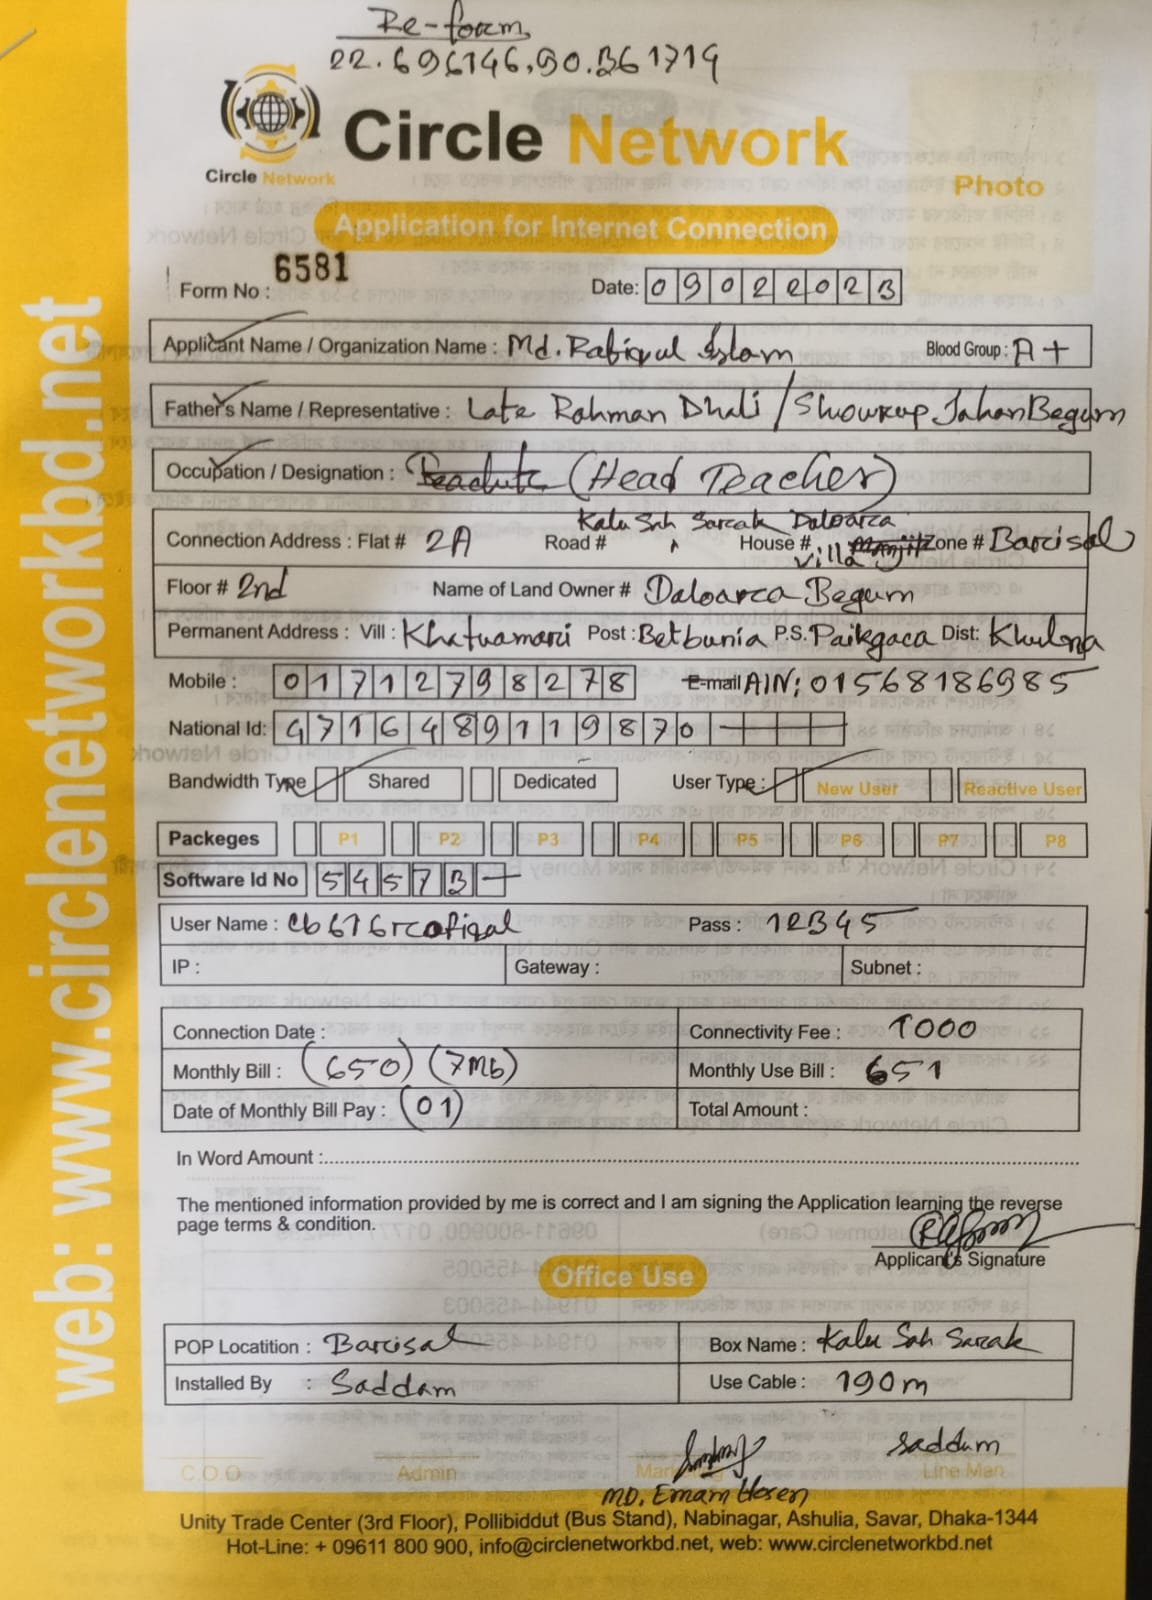 Re-form
22.696146,90.361719
Circle Network
Circle Network
Photo
Application for Internet Connection
Form No : 6581 Date: 09022023
Applicant Name / Organization Name : Md. Rafiqul Islam Blood Group : A+
Father's Name / Representative : Late Rahman Dhali / Showkup Jahan Begum
Occupation / Designation : (Head Teacher)
Kalu Sah Sarak Daloara
Connection Address : Flat # 2A Road # House # Villa Zone # Barisal
Floor # 2nd Name of Land Owner # Daloara Begum
Permanent Address : Vill : Khatuamari Post : Betbunia P.S. Paikgaca Dist: Khulna
Mobile : 01712798278 E-mail AIN: 01568186985
National Id: 4716489119870
Bandwidth Type Shared Dedicated User Type : New User Reactive User
Packeges P1 P2 P3 P4 P5 P6 P7 P8
Software Id No 54573
User Name : cb676rafiqal Pass : 12345
IP : Gateway : Subnet :
Connection Date : Connectivity Fee : 1000
Monthly Bill : (650) (7Mb) Monthly Use Bill : 651
Date of Monthly Bill Pay : (01) Total Amount :
In Word Amount :
The mentioned information provided by me is correct and I am signing the Application learning the reverse
page terms & condition.
Applicant's Signature
Office Use
POP Locatition : Barisal Box Name : Kalu Sah Sarak
Installed By : Saddam Use Cable : 190m
saddam
C.O.O Admin Marketing Line Man
MD. Emam Hosen
Unity Trade Center (3rd Floor), Pollibiddut (Bus Stand), Nabinagar, Ashulia, Savar, Dhaka-1344
Hot-Line: + 09611 800 900, info@circlenetworkbd.net, web: www.circlenetworkbd.net
web: www.circlenetworkbd.net